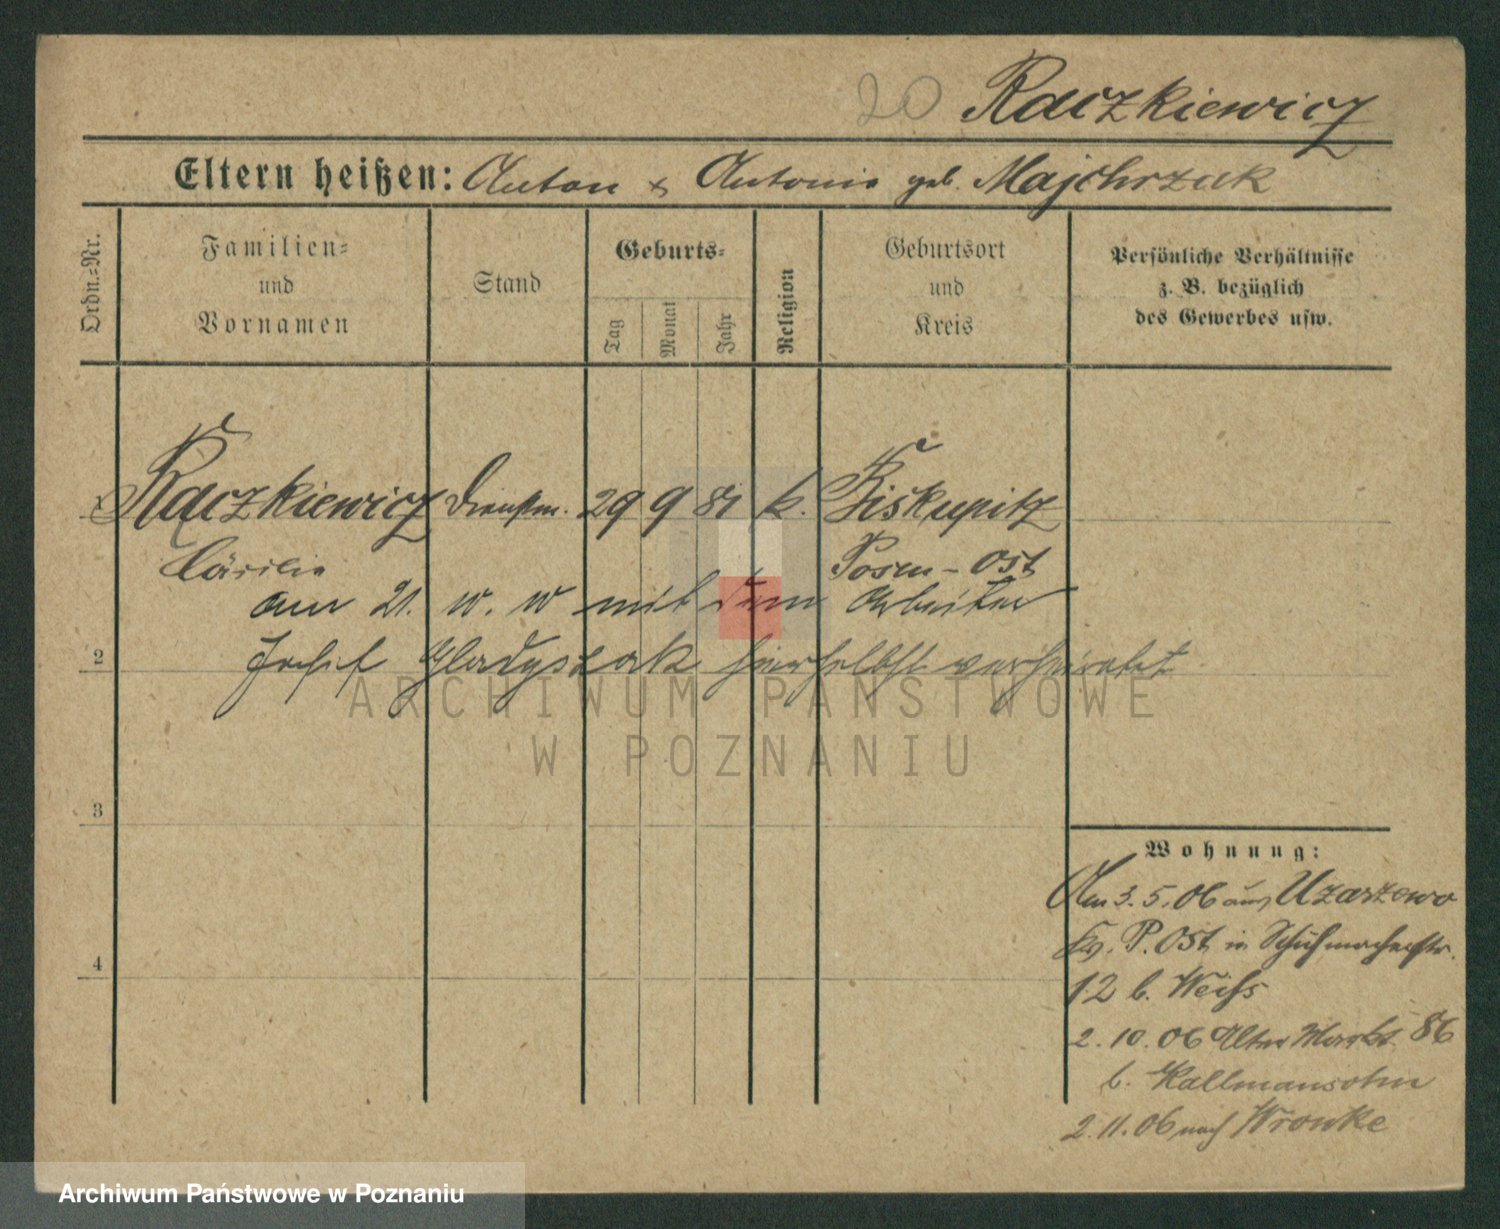 20 Raczkiewicz
Eltern heißen: Anton & Antonie geb. Majchrzak
Ordn.=Nr.
Familien=
und
Vornamen
Stand
Geburts=
Tag
Monat
Jahr
Religion
Geburtsort
und
Kreis
Persönliche Verhältnisse
z. B. bezüglich
des Gewerbes usw.
1 Raczkiewicz Dienstm. 29 9 81 k. Biskupitz
Cäcilie Posen-Ost
am 21. mit dem Arbeiter
2 Josef Gladyszak hierselbst verheiratet
ARCHIWUM PAŃSTWOWE
W POZNANIU
3
Wohnung:
Am 3.5.06 aus Uzarzewo
Kr. P. Ost in Schuhmacherstr.
12 b. Weiss
4
2.10.06 Alter Markt 86
b. Kallmansohn
2.11.06 nach Wronke
Archiwum Państwowe w Poznaniu